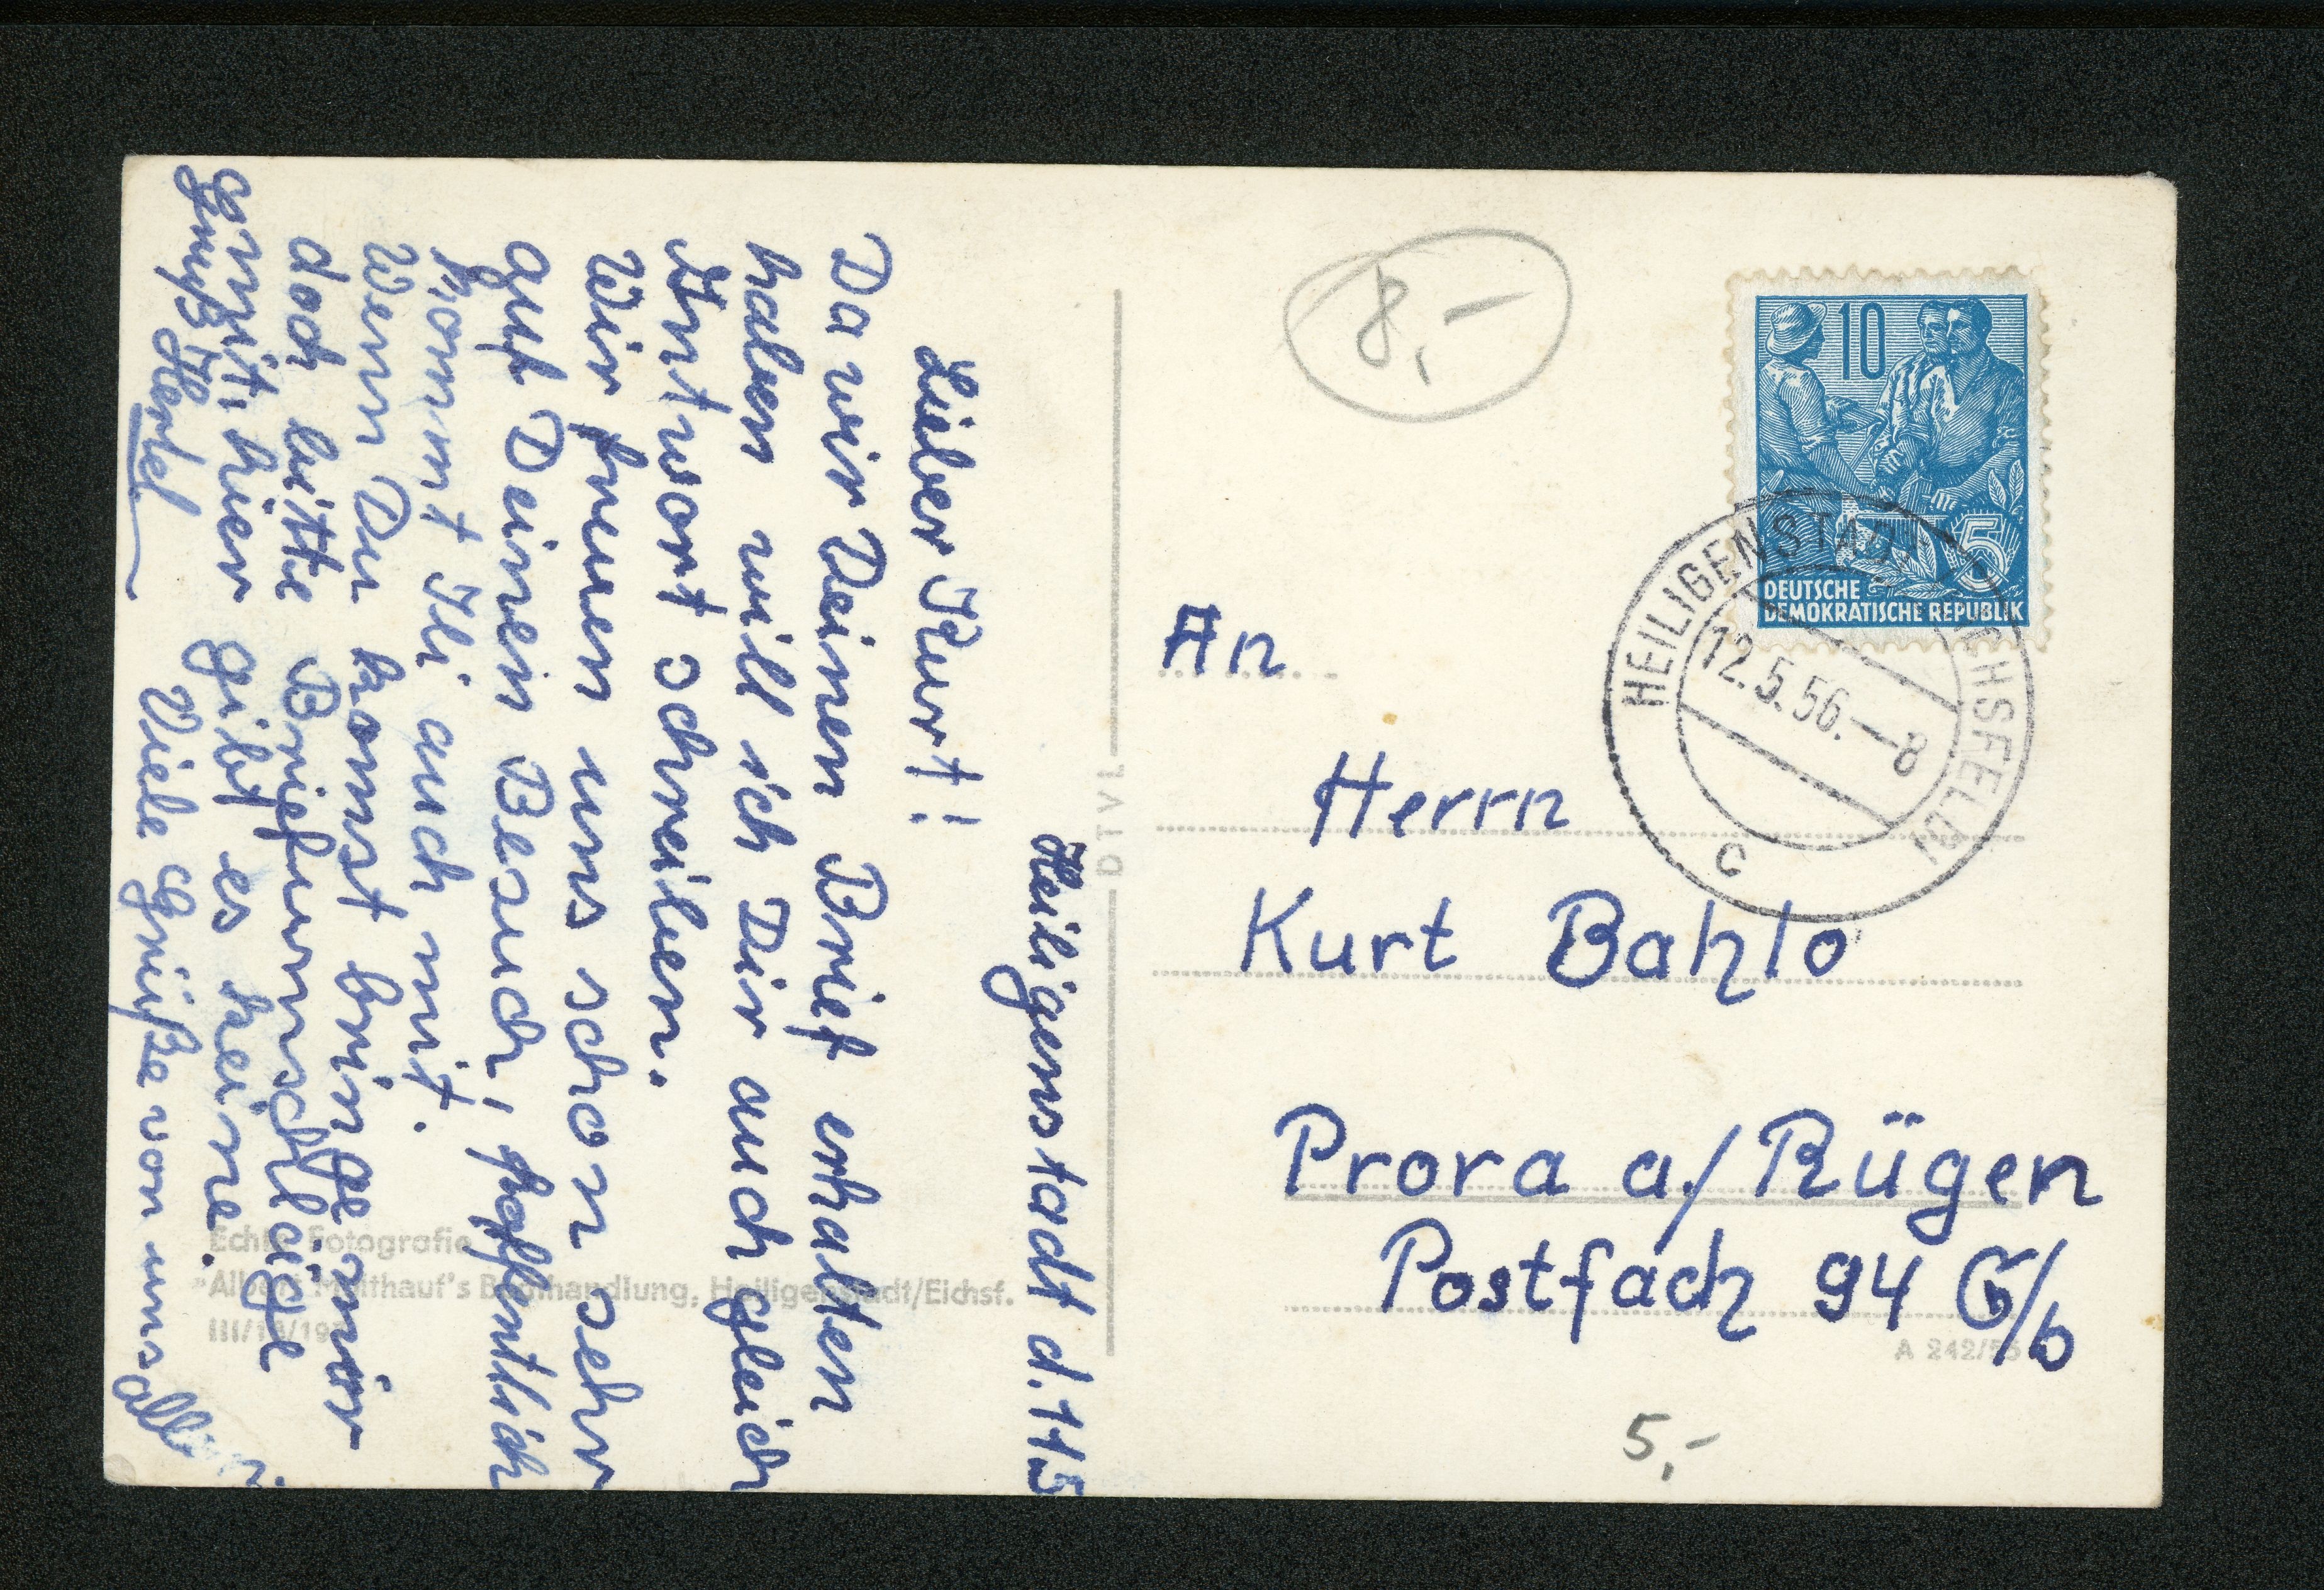 Heiligenstadt d. 11.5
Lieber Kurt!
Da wir Deinen Brief erhalten
haben will ich Dir auch gleich
Antwort schreiben.
Wir freuen uns schon sehr
auf Deinen Besuch, hoffentlich
kommt Ili auch mit.
Wenn Du komst bringe mir
doch bitte Briefumschläge
mit, hier gibt es keine.
Viele Grüße von uns allen
Gruß
8,-
10
5
DEUTSCHE
DEMOKRATISCHE REPUBLIK
HEILIGENSTADT (EICHSFELD)
12.5.56.-8
c
An
Herrn
Kurt Bahlo
Prora a/Rügen
Postfach 94 G/b
DTVP
Echte Fotografie
Albert Mülthauf's Buchhandlung, Heiligenstadt/Eichsf.
A 242/55
5,-